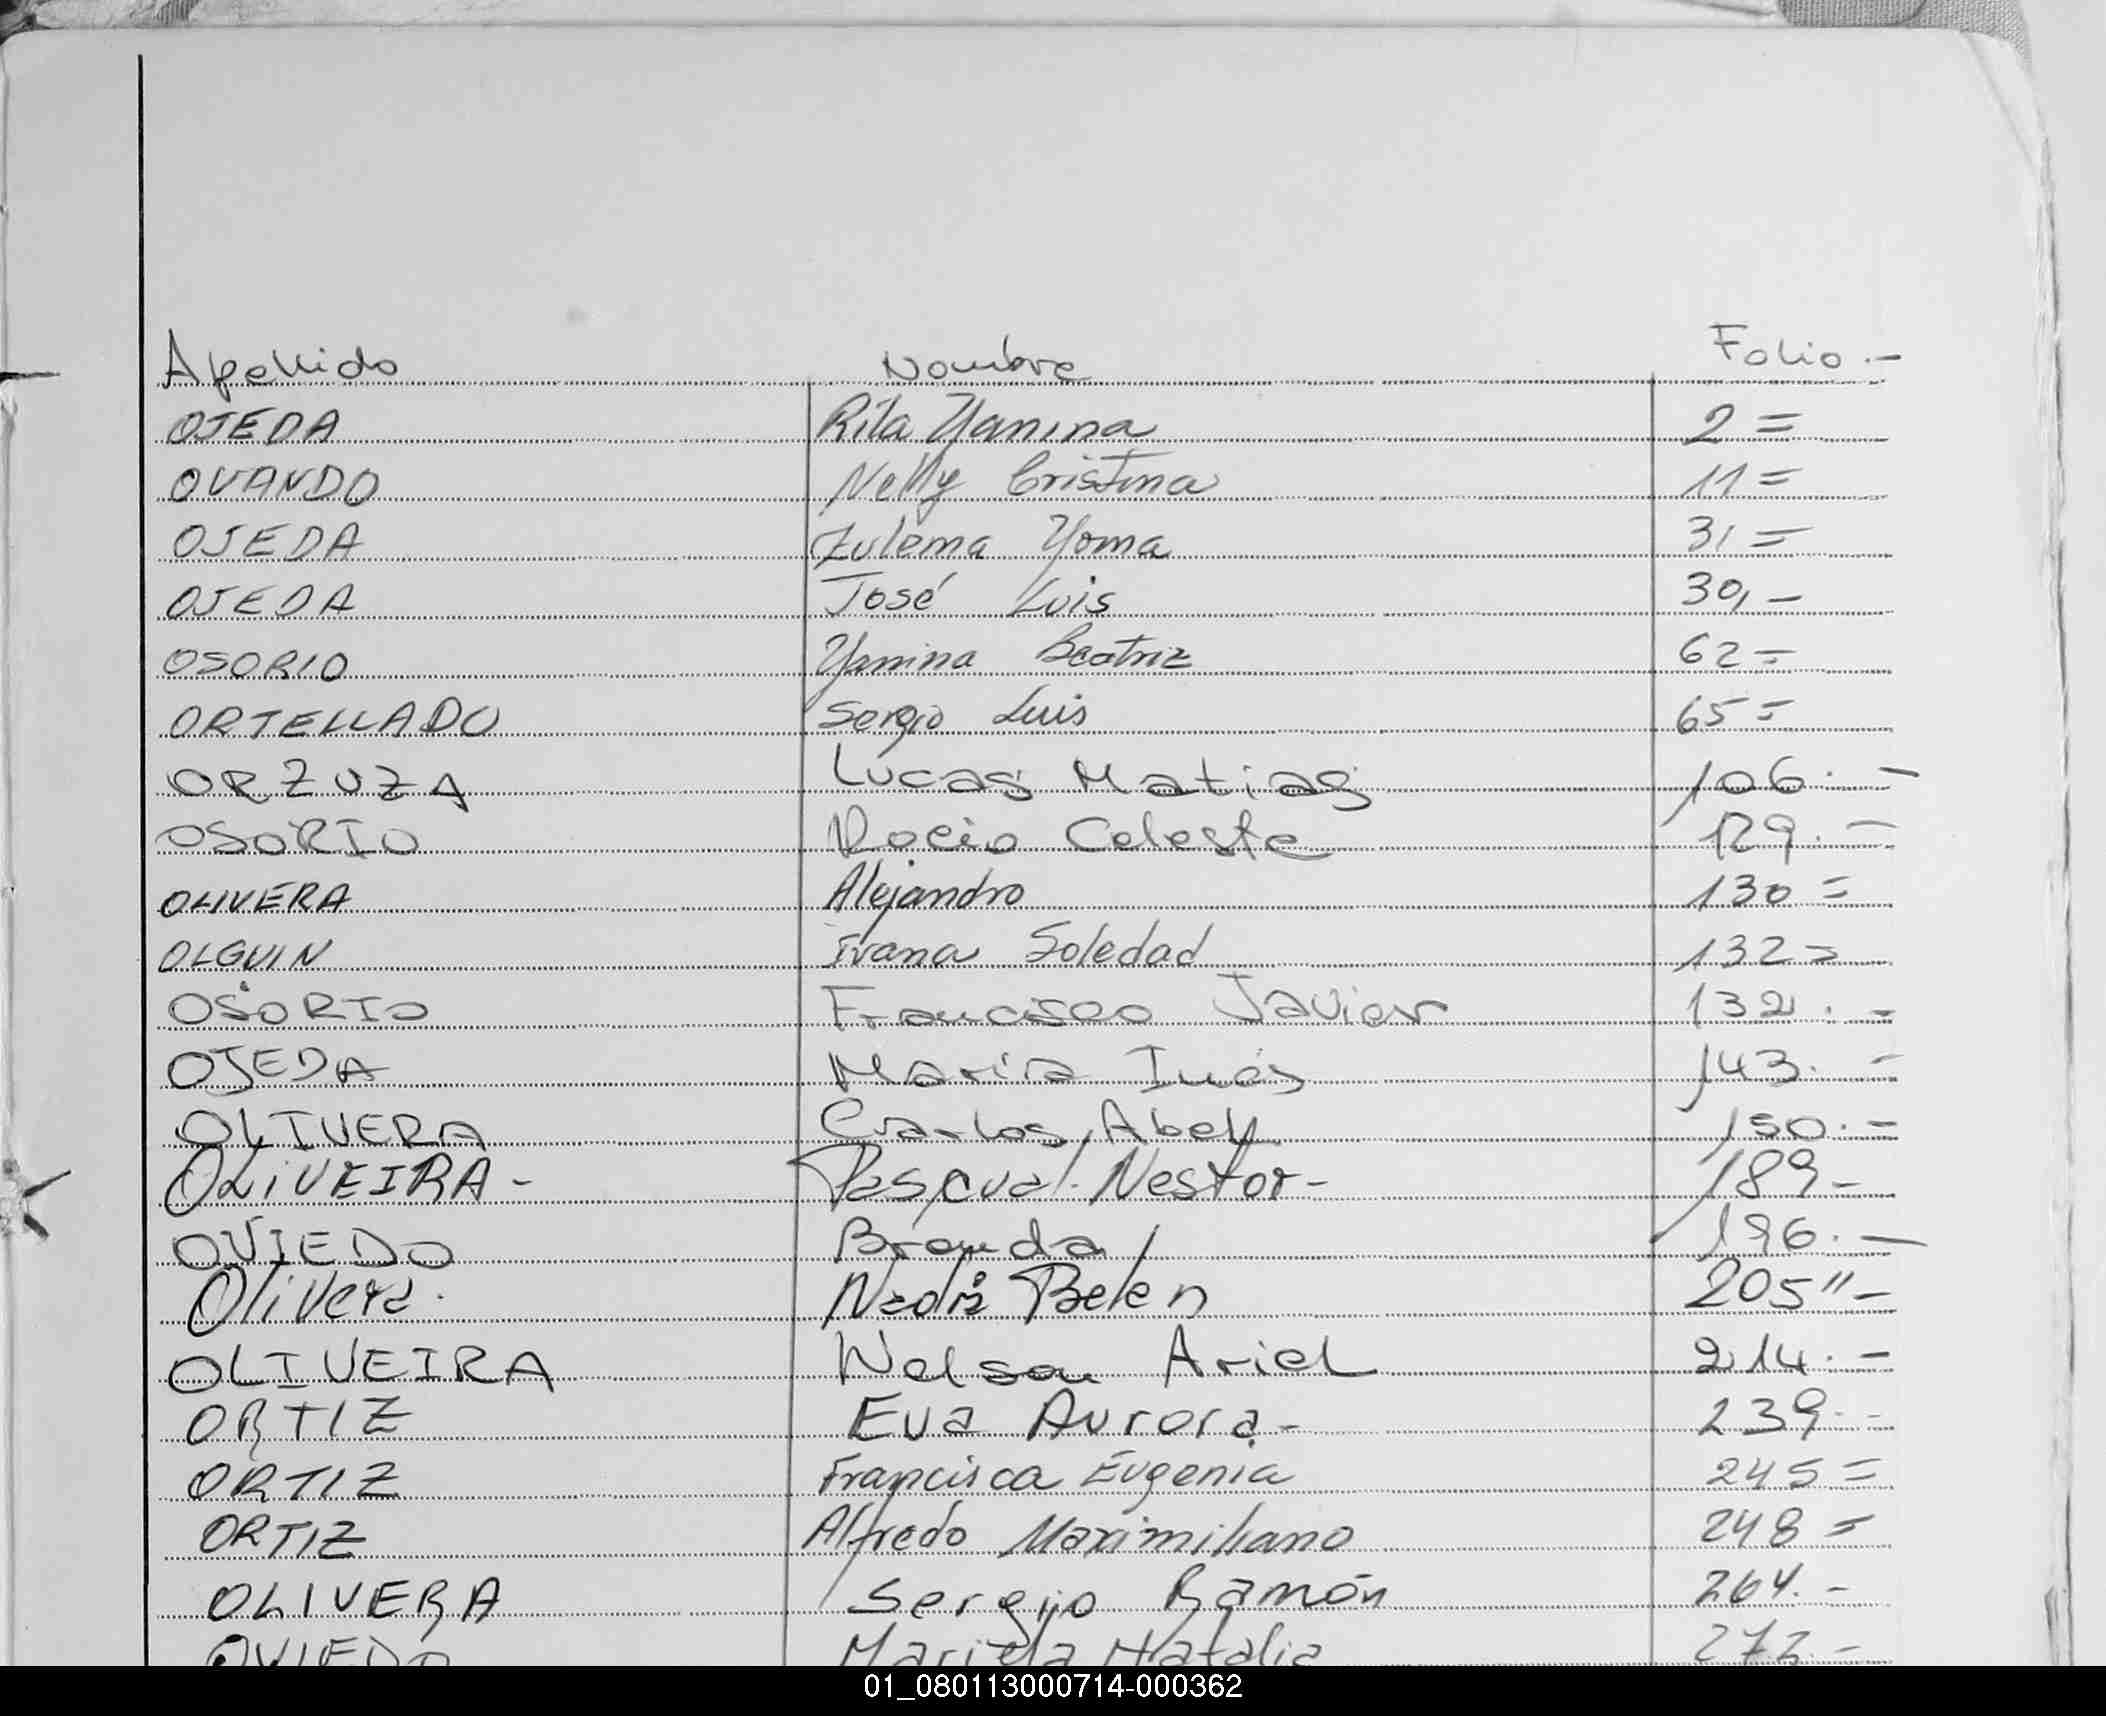 Apellido Nombre Folio.-
OJEDA Rita Yanina 2=
OVANDO Nelly Cristina 11=
OJEDA Zulema Yoma 31=
OJEDA José Luis 30,-
OSORIO Yanina Beatriz 62=
ORTELLADO Sergio Luis 65=
ORZUZA Lucas Matias 106.-
OSORIO Rocio Celeste 129.-
OLIVERA Alejandro 130=
OLGUIN Ivana Soledad 132=
OSORIO Francisco Javier 132.-
OJEDA María Inés 143.-
OLIVERA Carlos Abel 150.-
OLiVEIRA- Pascual Nestor- 189-
OVIEDO Brenda 196.-
Olivera. Nadia Belen 205"-
OLIVEIRA Nelson Ariel 214.-
ORTIZ Eva Aurora- 239.-
ORTIZ Francisca Eugenia 245=
ORTIZ Alfredo Maximiliano 248=
OLIVERA Sergio Ramón 264.-
OVIEDO Natalia
01_080113000714-000362